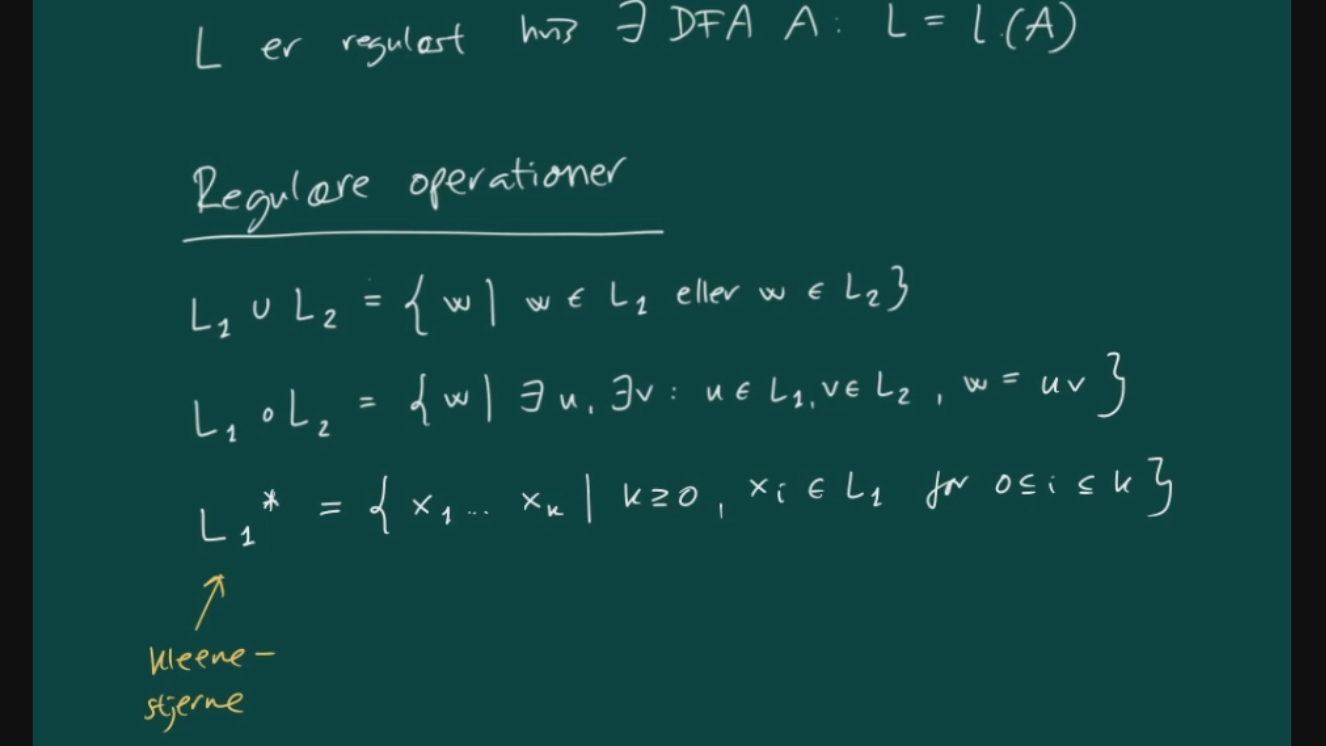 L er regulært hvis ∃ DFA A: L = L(A)
Regulære operationer
L₁ ∪ L₂ = { w | w ∈ L₁ eller w ∈ L₂ }
L₁ ∘ L₂ = { w | ∃u, ∃v : u ∈ L₁, v ∈ L₂ , w = uv }
L₁* = { x₁ ... xₖ | k ≥ 0, xᵢ ∈ L₁ for 0 ≤ i ≤ k }
↑
Kleene-
stjerne